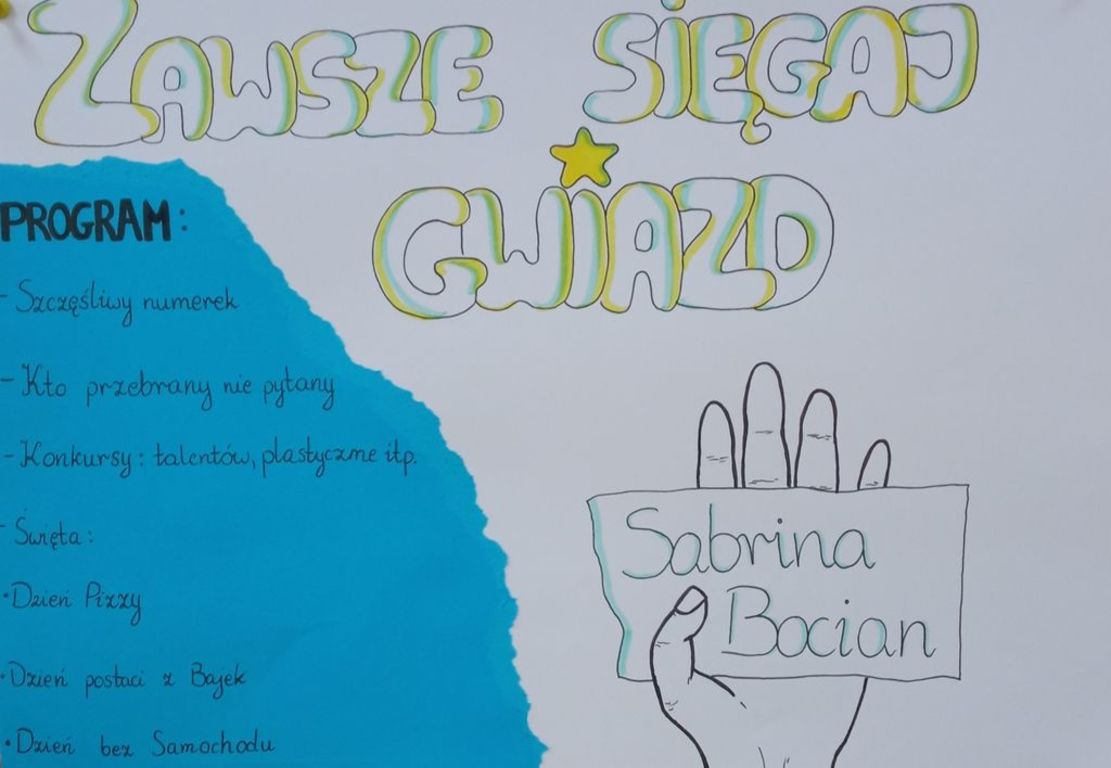 ZAWSZE SIĘGAJ
GWIAZD
PROGRAM:
- Szczęśliwy numerek
- Kto przebrany nie pytany
- Konkursy: talentów, plastyczne itp.
- Święta:
• Dzień Pizzy
• Dzień postaci z Bajek
• Dzień bez Samochodu
Sabrina
Bocian